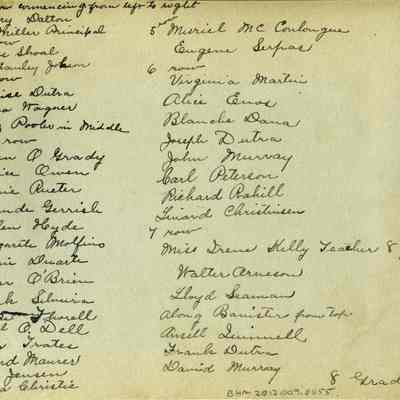 commencing from left to right
Dalton
Miller Principal
row
Shoal
Stanley
row
Dutra
Wagner
Pooler in Middle
row
O Grady
Owen
Rueter
Gerrish
Hyde
Molfino
Duarte
O'Brien
Silmira
Thorell
O. Dell
Trates
Maurer
Jensen
Christie
5 row Muriel Mc Conlongue
Eugene Serpas
6 row
Virginia Martin
Alice Enos
Blanche Dana
Joseph Dutra
John Murray
Carl Peterson
Richard Rahill
Linard Christensen
7 row
Miss Irene Kelly Teacher 8
Walter Arneson
Lloyd Seaman
Along Banister from top
Ansell Quinnell
Frank Dutra
David Murray
8 Grad
BHM 2012.009.0455.